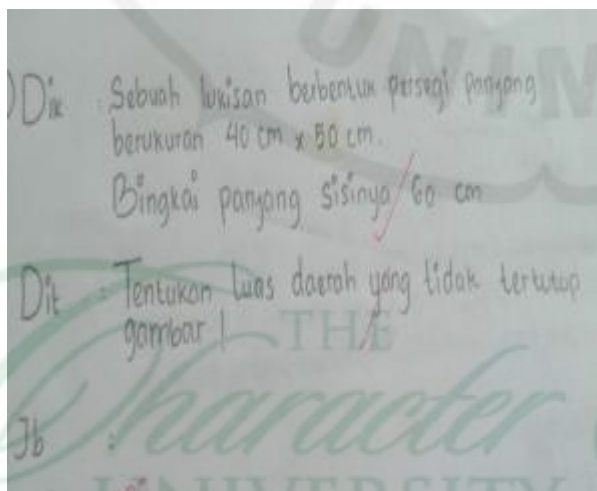 ) Dik : Sebuah lukisan berbentuk persegi panjang
berukuran 40 cm x 50 cm.
Bingkai panjang sisinya 60 cm
Dit : Tentukan luas daerah yang tidak tertutup
gambar !
Jb :
UNIM
THE
Character
UNIVERSITY